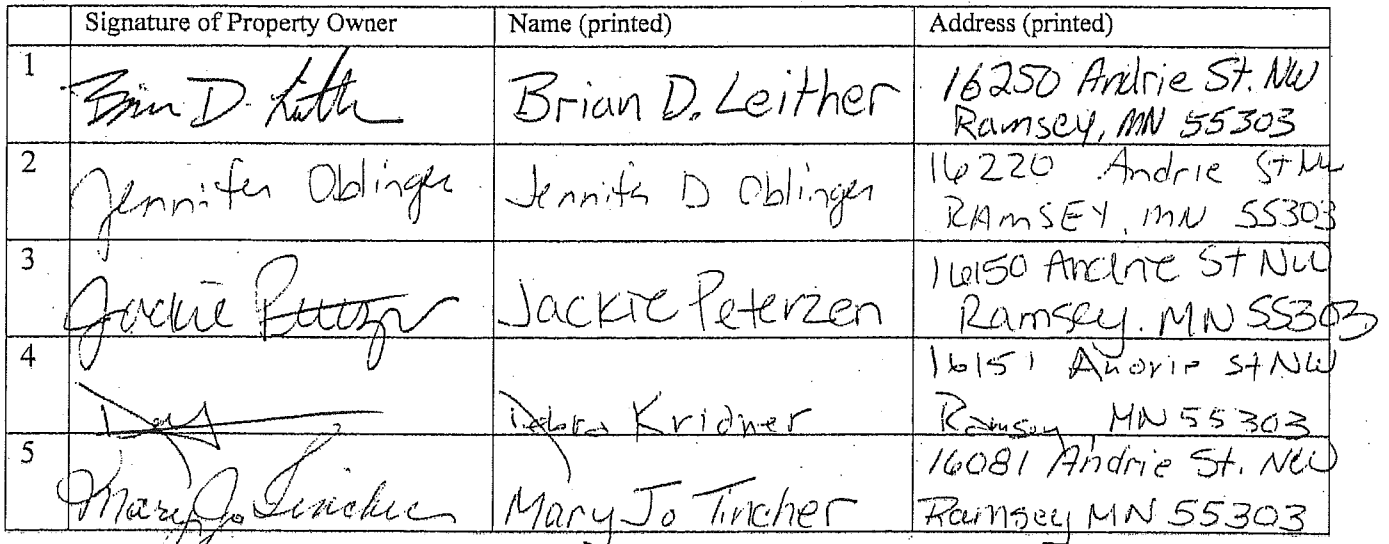 Signature of Property Owner Name (printed) Address (printed)
1 Brian D. Leither 16250 Andrie St. NW
Ramsey, MN 55303
2 Jennifer Oblinger Jennifer D Oblinger 16220 Andrie St NW
RAMSEY, MN 55303
3 Jackie Peterzen Jackie Peterzen 16150 Andrie St NW
Ramsey. MN 55303
4 Kridner 16151 Andrie St NW
Ramsey MN 55303
5 Mary Jo Tincher Mary Jo Tincher 16081 Andrie St. NW
Ramsey MN 55303